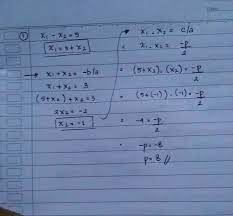 ① x₁ - x₂ = 5
x₁ = 5 + x₂
x₁ + x₂ = -b/a
x₁ + x₂ = 3
(5 + x₂) + x₂ = 3
2x₂ = -2
x₂ = -1
x₁ . x₂ = c/a
= x₁ . x₂ = -p/2
= (5 + x₂) . (x₂) = -p/2
= (5 + (-1)) . (-1) = -p/2
= -4 = -p/2
-p = -8
p = 8 //